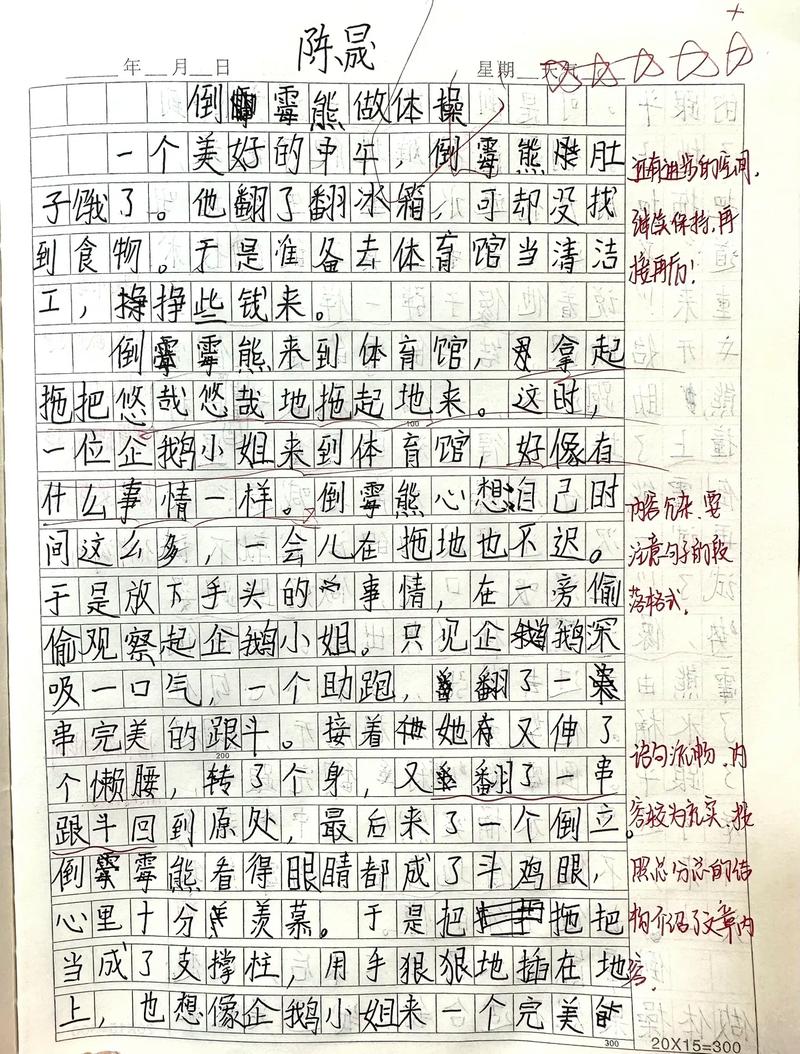 陈晟
年 月 日
星期 天气
倒霉熊做体操
一个美好的中午，倒霉熊肚
子饿了。他翻了翻冰箱，可却没找
到食物。于是准备去体育馆当清洁
工，挣挣些钱来。
倒霉熊来到体育馆，拿起
拖把悠哉悠哉地拖起地来。这时，
一位企鹅小姐来到体育馆，好像有
什么事情一样。倒霉熊心想自己时
间这么多，一会儿在拖地也不迟。
于是放下手头的事情，在一旁偷
偷观察起企鹅小姐。只见企鹅深
吸一口气，一个助跑，翻了一
串完美的跟斗。接着她又伸了
个懒腰，转了个身，又翻了一串
跟斗回到原处，最后来了一个倒立。
倒霉熊看得眼睛都成了斗鸡眼，
心里十分羡慕。于是把拖把
当成了支撑柱，用手狠狠地插在地
上，也想像企鹅小姐来一个完美的
100
200
300
20X15=300
还有进步的空间，
继续保持，再
接再厉！
内容冗杂，要
注意句子的段
落格式。
语句流畅，内
容较为充实，按
照总分总的结
构介绍了文章内
容。